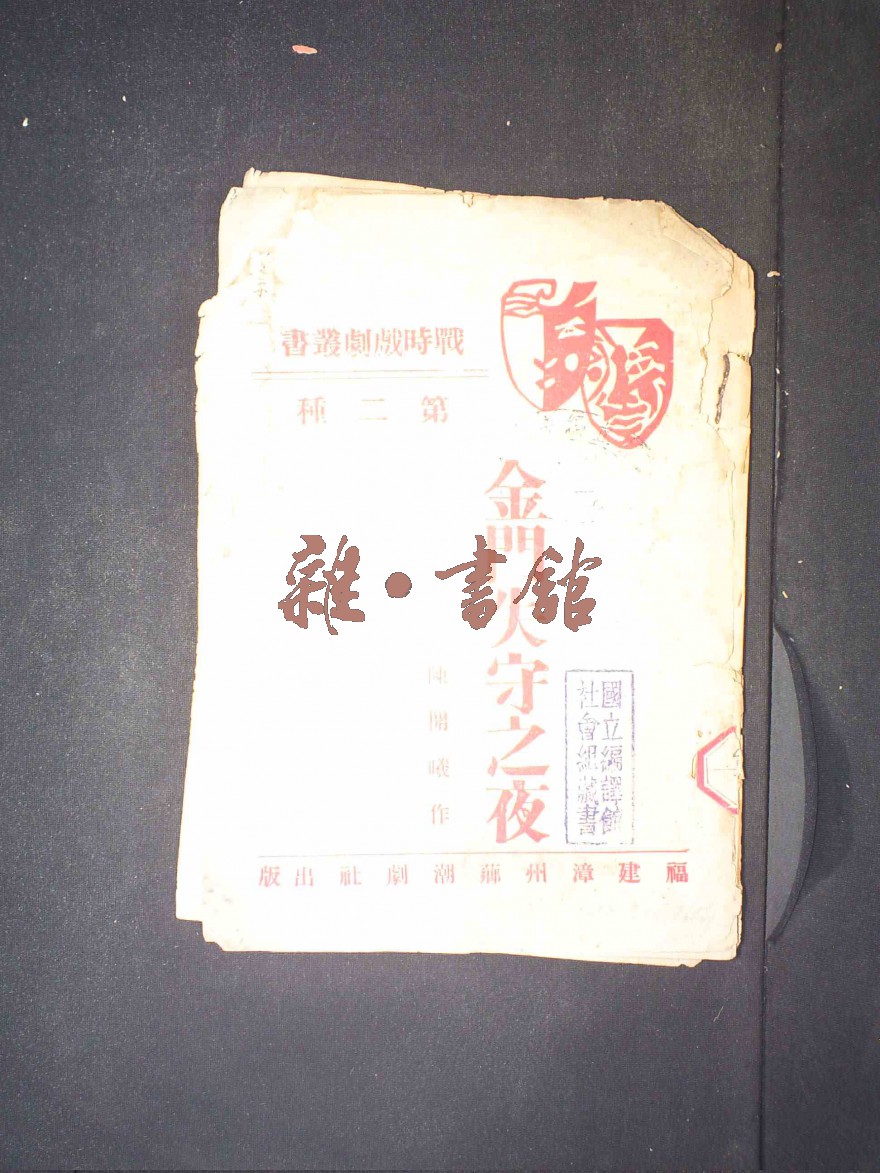 戰時戲劇叢書
第二種
金門失守之夜
陳開曦作
國立編譯館
社會組藏書
福建漳州薌潮劇社出版
雜·書館